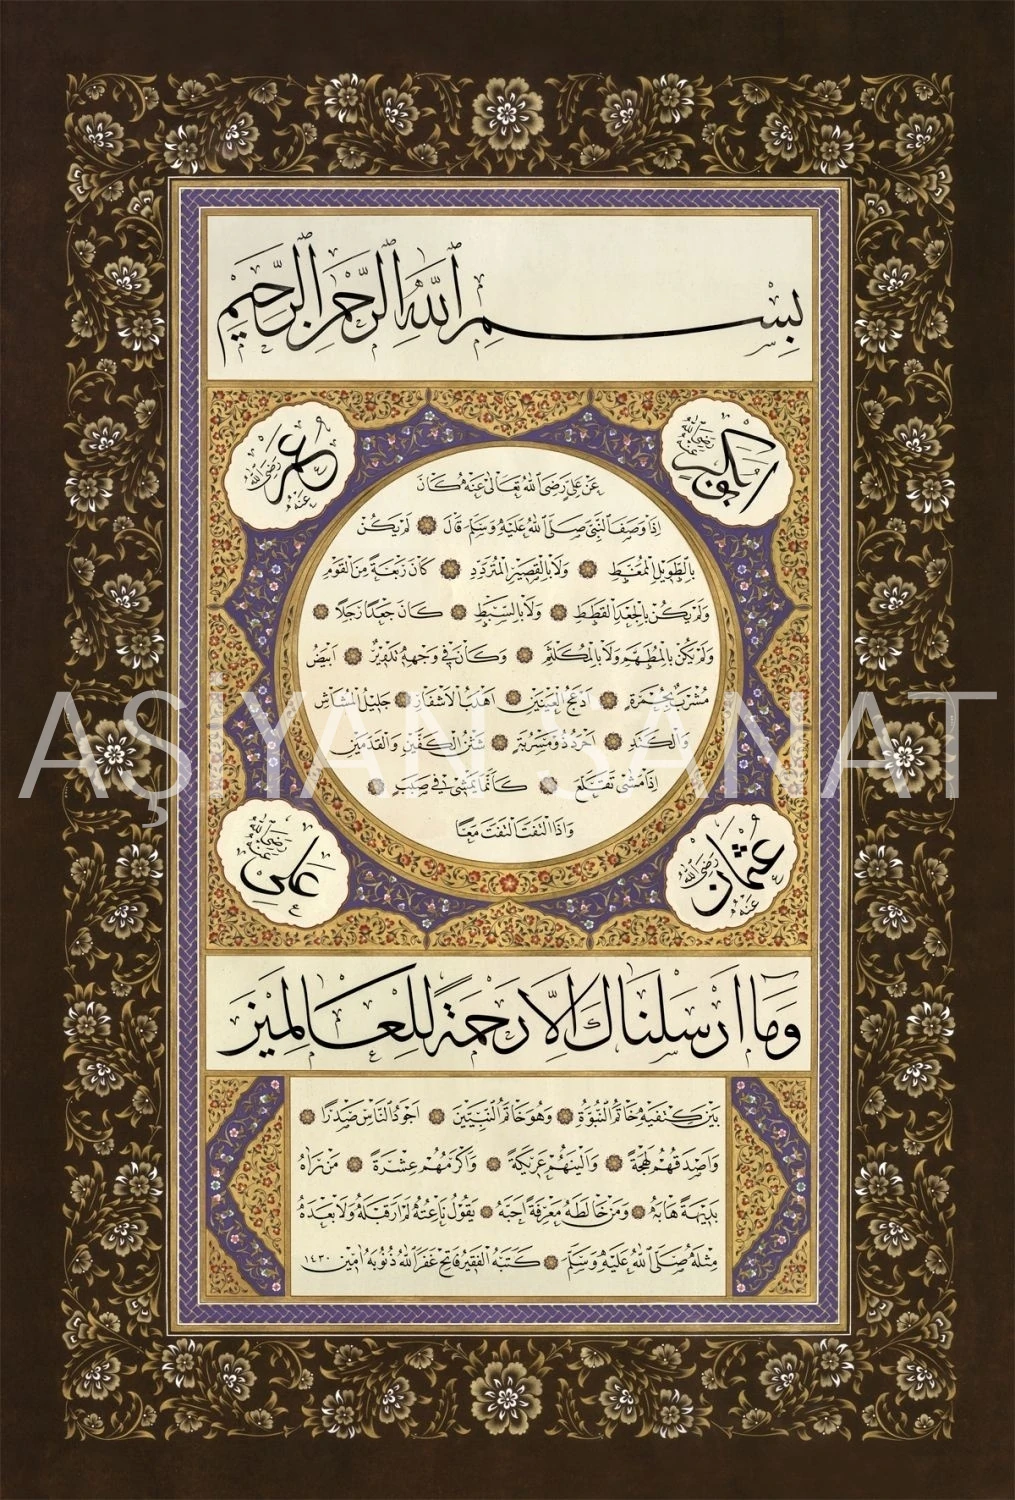 بِسْمِ ٱللّٰهِ الرَّحْمٰنِ الرَّحِيمِ
ابو بكر رضي الله عنه
عمر رَضِيَ اللّٰه عَنْهُ
عَنْ عَلِيٍّ رَضِيَ ٱللّٰهُ تَعَالٰى عَنْهُ كَانَ
اِذَا وَصَفَ النَّبِيَّ صَلَّى ٱللّٰهُ عَلَيْهِ وَسَلَّمَ قَالَ لَمْ يَكُنْ
بِالطَّوِيلِ الْمُمَّغِطِ وَلَا بِالْقَصِيرِ الْمُتَرَدِّدِ كَانَ رَبْعَةً مِنَ الْقَوْمِ
وَلَمْ يَكُنْ بِالْجَعْدِ الْقَطَطِ وَلَا بِالسَّبِطِ كَانَ جَعْدًا رَجِلًا
وَلَمْ يَكُنْ بِالْمُطَهَّمِ وَلَا بِالْمُكَلْثَمِ وَكَانَ فِي وَجْهِهِ تَدْوِيرٌ اَبْيَضُ
مُشْرَبٌ بِحُمْرَةٍ اَدْعَجُ الْعَيْنَيْنِ اَهْدَبُ الْاَشْفَارِ جَلِيلُ الْمُشَاشِ
وَالْكَتَدِ اَجْرَدُ ذُو مَسْرُبَةٍ شَثْنُ الْكَفَّيْنِ وَالْقَدَمَيْنِ
اِذَا مَشٰى تَقَلَّعَ كَاَنَّمَا يَمْشِي فِي صَبَبٍ
وَاِذَا الْتَفَتَ الْتَفَتَ مَعًا
AŞİYAN SANAT
عُثْمَان رَضِيَ اللّٰه عَنْهُ
عَلِي رضي الله عنه
وَمَا اَرْسَلْنَاكَ اِلَّا رَحْمَةً لِلْعَالَمِينَ
بَيْنَ كَتِفَيْهِ خَاتَمُ النُّبُوَّةِ وَهُوَ خَاتَمُ النَّبِيِّينَ اَجْوَدُ النَّاسِ صَدْرًا
وَاَصْدَقُهُمْ لَهْجَةً وَاَلْيَنُهُمْ عَرِيكَةً وَاَكْرَمُهُمْ عِشْرَةً مَنْ رَاٰهُ
بَدِيهَةً هَابَهُ وَمَنْ خَالَطَهُ مَعْرِفَةً اَحَبَّهُ يَقُولُ نَاعِتُهُ لَمْ اَرَ قَبْلَهُ وَلَا بَعْدَهُ
مِثْلَهُ صَلَّى ٱللّٰهُ عَلَيْهِ وَسَلَّمَ كَتَبَهُ الْفَقِيرُ فَاتِحُ غَفَرَ ٱللّٰهُ ذُنُوبَهُ اٰمِين ١٤٣٠